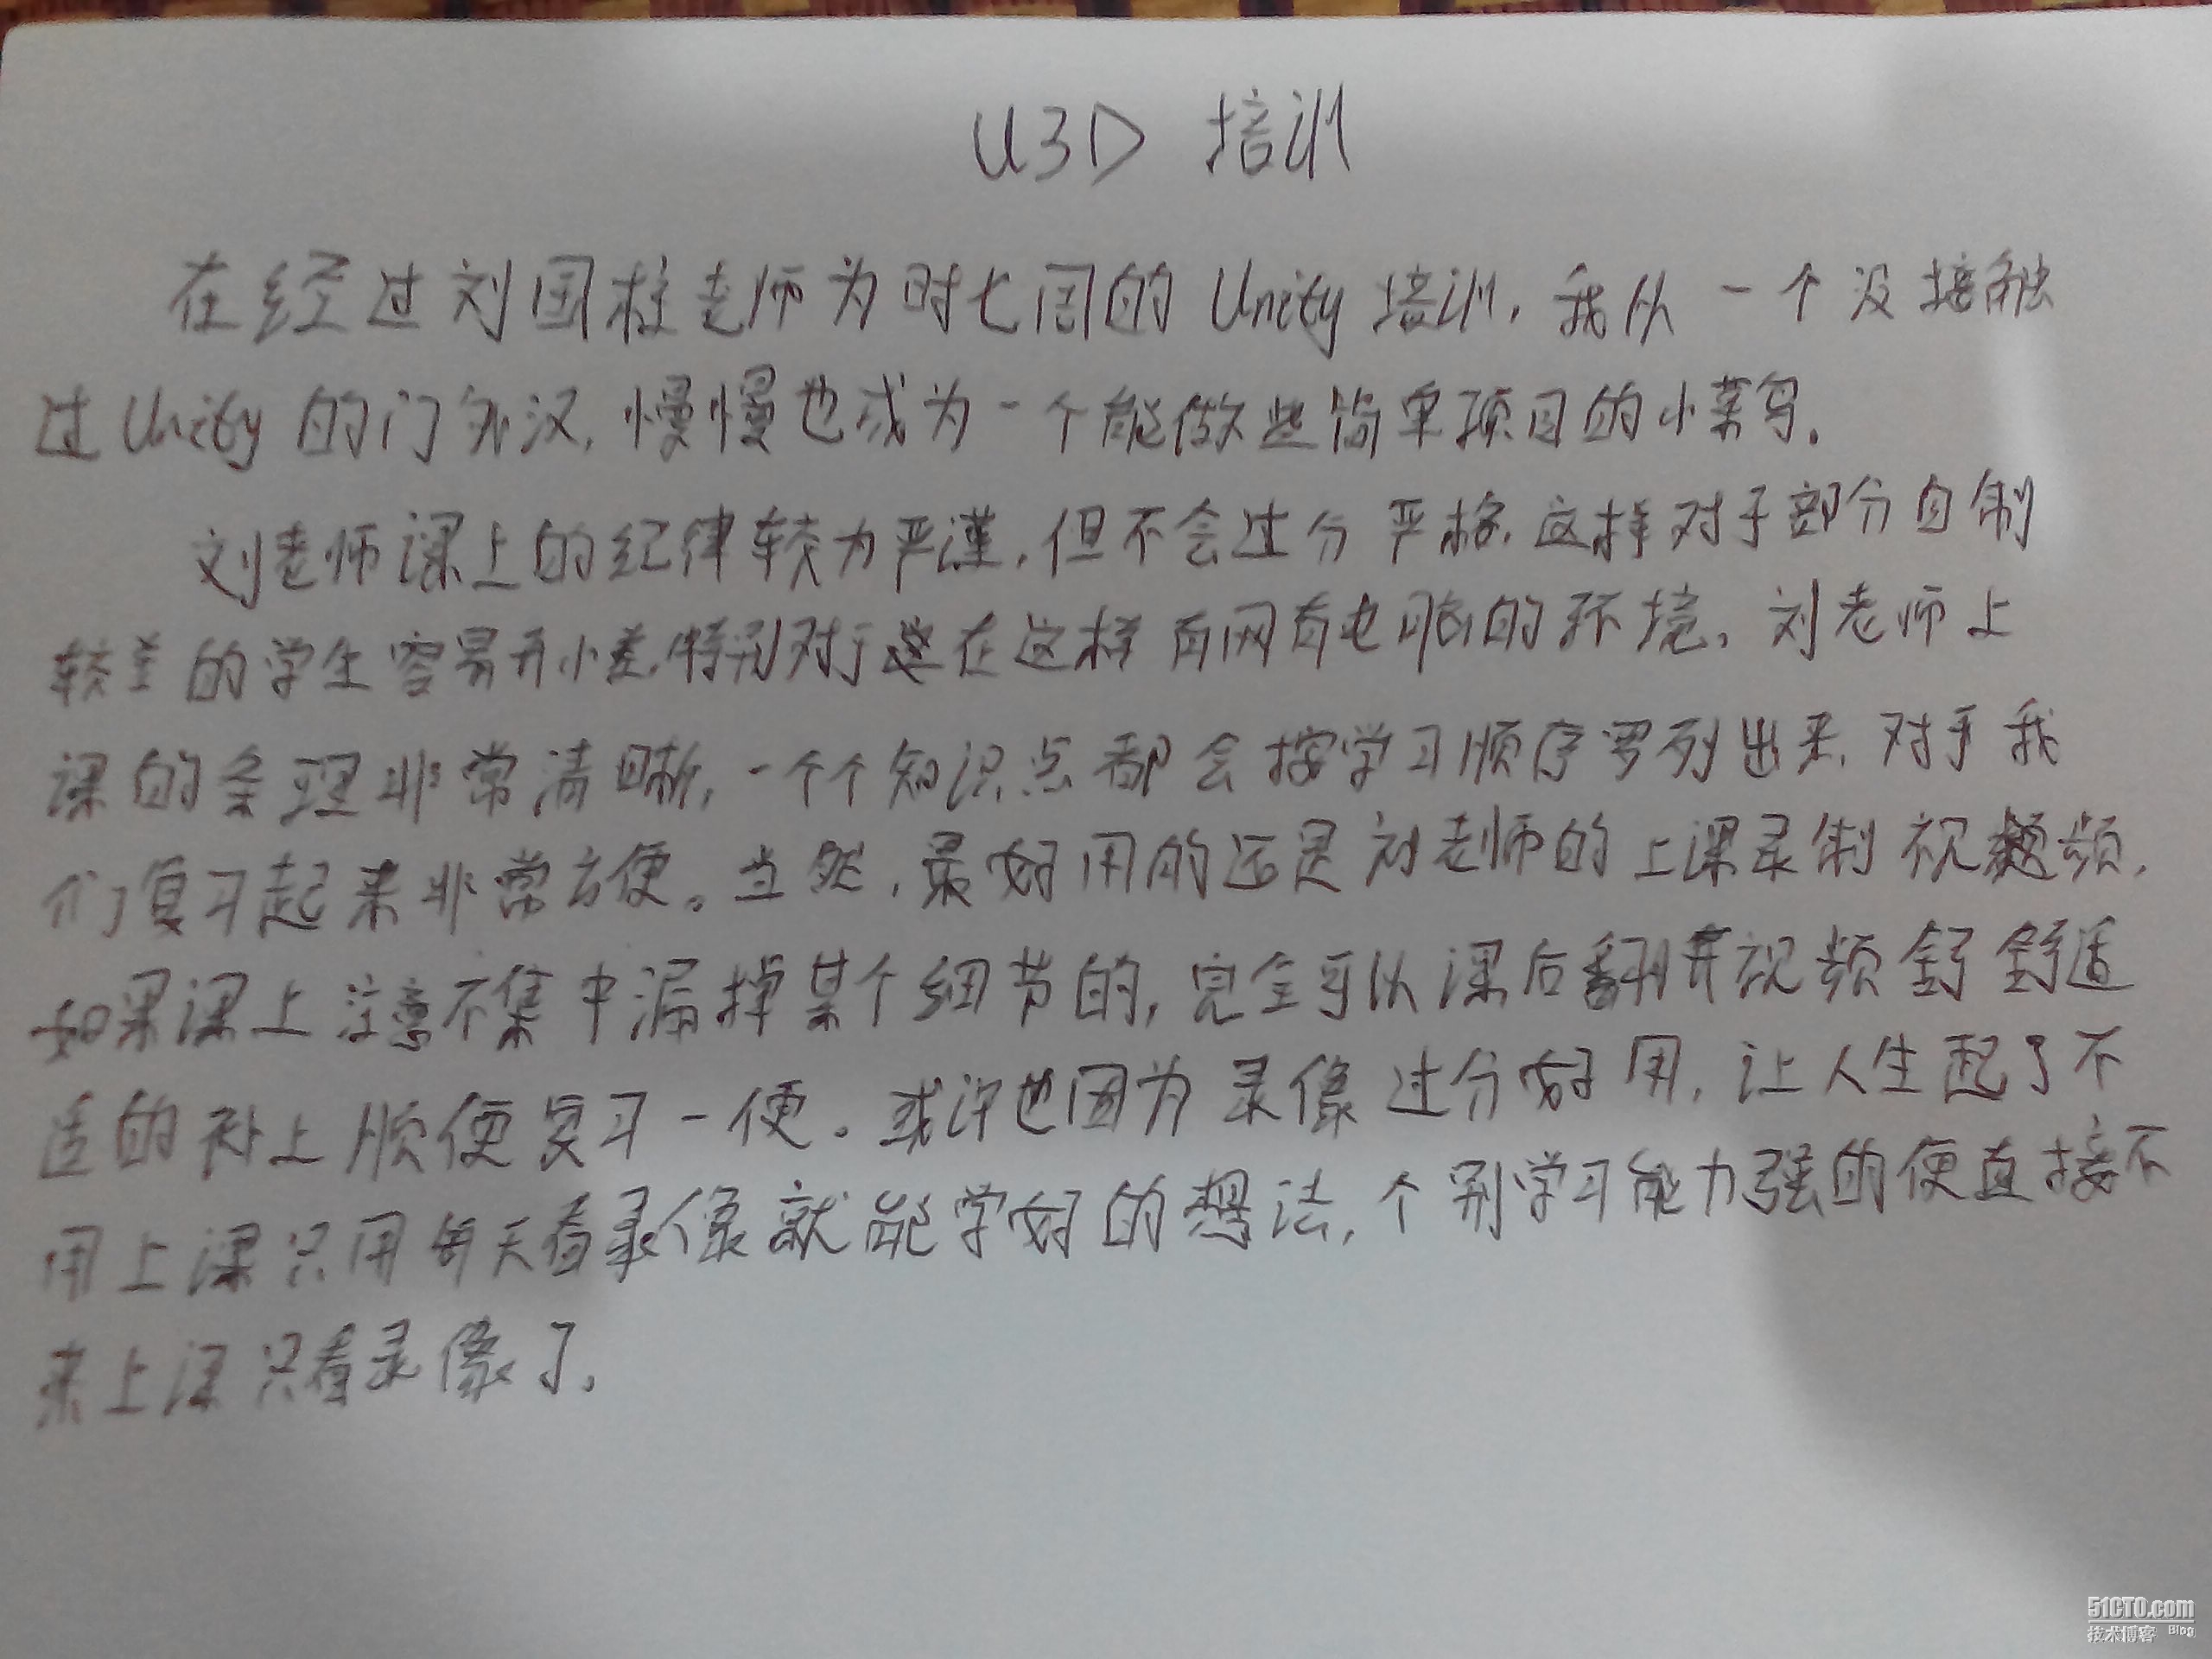 U3D 培训
在经过刘国柱老师为时七周的Unity培训，我从一个没接触
过Unity的门外汉，慢慢也成为一个能做些简单项目的小菜鸟。
刘老师课上的纪律较为严谨，但不会过分严格，这样对于部分自制
较差的学生容易开小差，特别对于在这样有网有电脑的环境。刘老师上
课的条理非常清晰，一个个知识点都会按学习顺序罗列出来，对于我
们复习起来非常方便。当然，最好用的还是刘老师的上课录制视频，
如果课上注意不集中漏掉某个细节的，完全可以课后翻开视频舒舒适
适的补上顺便复习一便。或许也因为录像过分好用，让人生起了不
用上课只用每天看录像就能学好的想法，个别学习能力强的便直接不
来上课只看录像了。
51CTO.com
技术博客 Blog